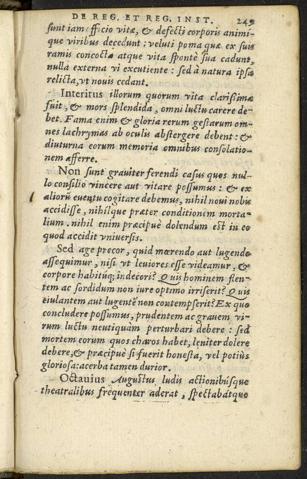 DE REG. ET REG. INST. 249
sunt iam officio vitæ, & defecti corporis animi-
que viribus decedunt: veluti poma quæ ex suis
ramis concocta atque vita sponte sua cadunt,
nulla externa vi excutiente: sed à natura ipsa
relicta, vt nouis cedant.
Interitus illorum quorum vita clarissima
fuit, & mors splendida, omni luctu carere de-
bet. Fama enim & gloria rerum gestarum om-
nes lachrymas ab oculis abstergere debent: &
diuturna eorum memoria omnibus consolatio-
nem afferre.
Non sunt grauiter ferendi casus quos nul-
lo consilio vincere aut vitare possumus: & ex
aliorū euentu cogitare debemus, nihil noui nobis
accidisse, nihilque præter conditionem morta-
lium. nihil enim præcipuè dolendum est in eo
quod accidit vniuersis.
Sed age precor, quid mærendo aut lugendo
assequimur, nisi vt leuiores esse videamur, &
corpore habitúq; indecori? Quis hominem flen-
tem ac sordidum non iure optimo irriserit? Quis
eiulantem aut lugentē non contempserit? Ex quo
concludere possumus, prudentem ac grauem vi-
rum luctu neutiquàm perturbari debere: sed
mortem eorum quos charos habet, leniter dolere
debere, & præcipuè si fuerit honesta, vel potiùs
gloriosa: acerba tamen durior.
Octauius Augustus ludis actionibúsque
theatralibus frequenter aderat, spectabátque